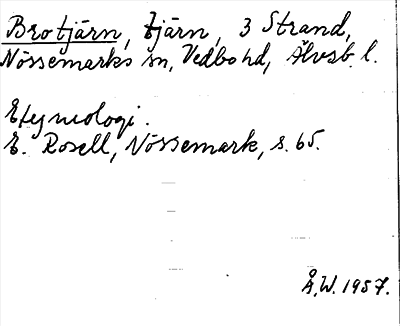 Brotjärn, tjärn, 3 Strand,
Nössemarks sn, Vedbo hd, Älvsb. l.
Etymologi.
E. Rosell, Nössemark, s. 65.
Å.W. 1957.